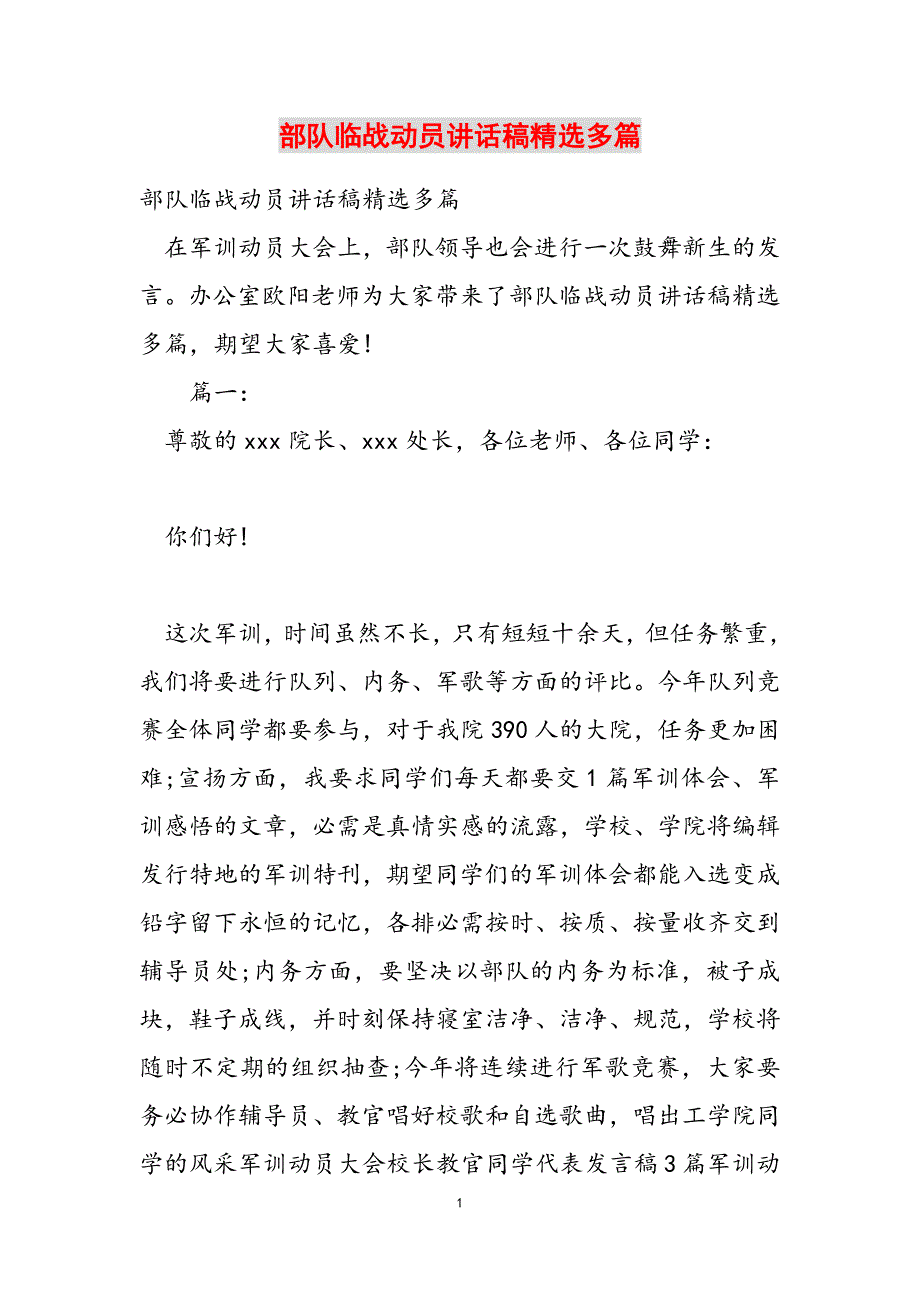 部队临战动员讲话稿精选多篇
部队临战动员讲话稿精选多篇
在军训动员大会上，部队领导也会进行一次鼓舞新生的发
言。办公室欧阳老师为大家带来了部队临战动员讲话稿精选
多篇，期望大家喜爱！
篇一：
尊敬的 xxx 院长、xxx 处长，各位老师、各位同学：
你们好！
这次军训，时间虽然不长，只有短短十余天，但任务繁重，
我们将要进行队列、内务、军歌等方面的评比。今年队列竞
赛全体同学都要参与，对于我院 390 人的大院，任务更加困
难;宣扬方面，我要求同学们每天都要交 1 篇军训体会、军
训感悟的文章，必需是真情实感的流露，学校、学院将编辑
发行特地的军训特刊，期望同学们的军训体会都能入选变成
铅字留下永恒的记忆，各排必需按时、按质、按量收齐交到
辅导员处;内务方面，要坚决以部队的内务为标准，被子成
块，鞋子成线，并时刻保持寝室洁净、洁净、规范，学校将
随时不定期的组织抽查;今年将连续进行军歌竞赛，大家要
务必协作辅导员、教官唱好校歌和自选歌曲，唱出工学院同
学的风采军训动员大会校长教官同学代表发言稿 3 篇军训动
1